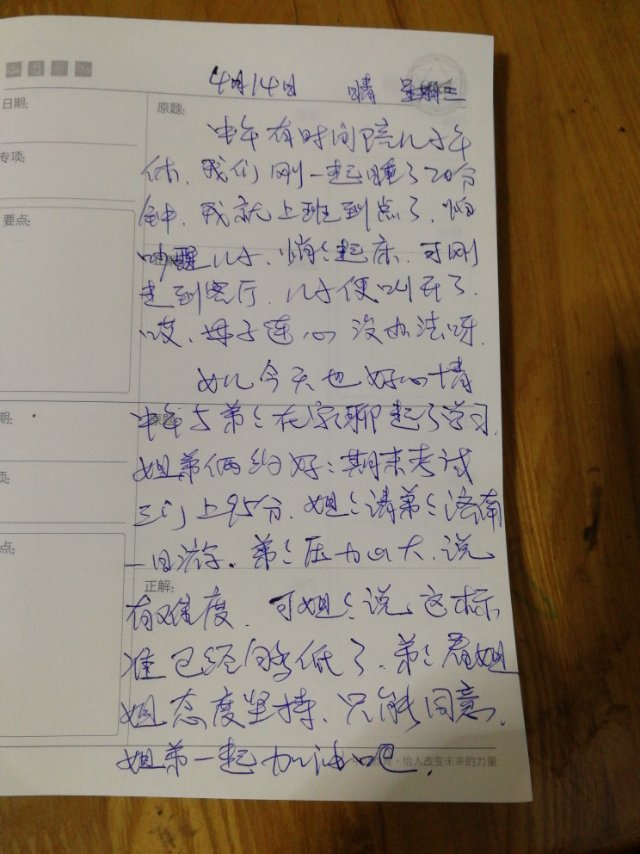 4月14日 晴 星期三
日期:
原题:
中午有时间陪儿子午
专项:
休,我们刚一起睡了20分
钟,我就上班到点了,怕
要点:
吵醒儿子,悄悄起床,可刚
走到客厅,儿子便叫开了.
哎,母子连心 没办法呀.
女儿今天也好心情
期:
中午与弟弟在家聊起了学习.
姐弟俩约好:期末考试
项:
三门上95分,姐姐请弟弟济南
一日游。弟弟压力山大,说
点:
正解:
有难度,可姐姐说,这标
准已经降低了.弟弟看姐
姐态度坚持,只能同意.
姐弟一起加油吧.
·给人改变未来的力量